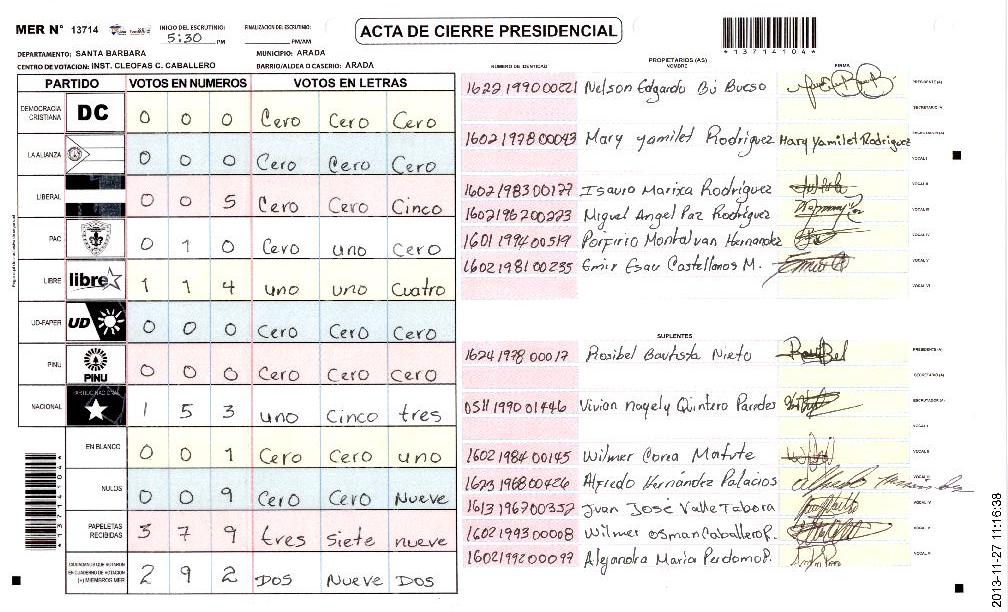 MER N° 13714
INICIO DEL ESCRUTINIO:
5:30 PM
FINALIZACION DEL ESCRUTINIO:
PM/AM
ACTA DE CIERRE PRESIDENCIAL
*13714104*
DEPARTAMENTO: SANTA BARBARA
MUNICIPIO: ARADA
CENTRO DE VOTACION: INST. CLEOFAS C. CABALLERO
BARRIO/ALDEA O CASERIO: ARADA
PARTIDO VOTOS EN NUMEROS VOTOS EN LETRAS
DEMOCRACIA CRISTIANA DC 0 0 0 Cero Cero Cero
LA ALIANZA 0 0 0 Cero Cero Cero
LIBERAL 0 0 5 Cero Cero Cinco
PAC 0 1 0 Cero uno Cero
LIBRE libre 1 1 4 uno uno Cuatro
UD-FAPER UD 0 0 0 Cero Cero Cero
PINU PINU 0 0 0 Cero Cero Cero
NACIONAL PARTIDO NACIONAL 1 5 3 uno Cinco tres
EN BLANCO 0 0 1 Cero Cero uno
NULOS 0 0 9 Cero Cero Nueve
PAPELETAS RECIBIDAS 3 7 9 tres siete nueve
CIUDADANOS QUE VOTARON EN CUADERNO DE VOTACION (+) MIEMBROS MER 2 9 2 DOS Nueve DOS
*13714104*
PROPIETARIOS (AS)
NUMERO DE IDENTIDAD NOMBRE FIRMA
1622199000221 Nelson Edgardo Bú Bueso PRESIDENTE (A)
1602197800043 Mary Yamilet Rodriguez Mary Yamilet Rodriguez
VOCAL I
1602198300177 Isauro Marixa Rodríguez VOCAL II
1602196200273 Miguel Angel Paz Rodríguez VOCAL III
1601199400519 Porfirio Montalvan Hernandez VOCAL IV
1602198100235 Emir Esau Castellanos M. VOCAL V
VOCAL VI
SUPLENTES
1624197800017 Rosibel Bautista Nieto PRESIDENTE (A)
SECRETARIO (A)
0511199001446 Vivian Nayely Quintero Paredes ESCRUTADOR (A)
VOCAL I
1602198400145 Wilmer Corea Matute VOCAL II
1623196800426 Alfredo Hernández Palacios VOCAL III
1613196700352 Juan José Valle Tabora VOCAL IV
1602199300008 Wilmer Osman Caballero P. VOCAL V
1602199200099 Alejandra Maria Perdomo P. VOCAL VI
2013-11-27 11:16:38